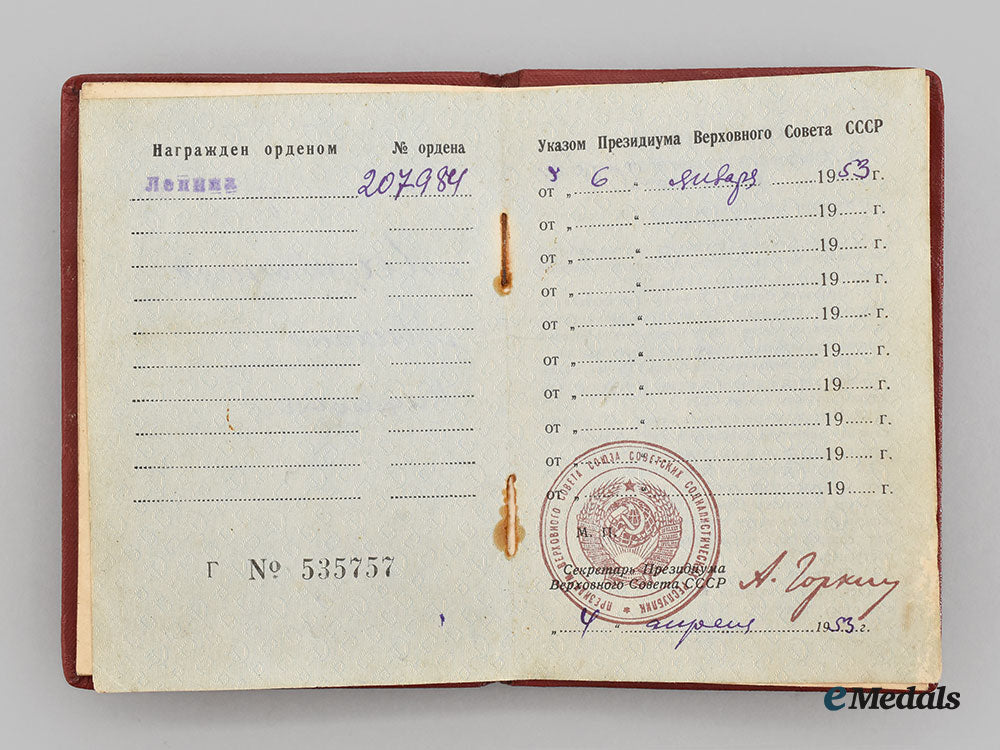 Награжден орденом № ордена
Ленина 207984
Г № 535757
Указом Президиума Верховного Совета СССР
от „ 6 “ января 1953 г.
от „ “ 19 г.
от „ “ 19 г.
от „ “ 19 г.
от „ “ 19 г.
от „ “ 19 г.
от „ “ 19 г.
от „ “ 19 г.
от „ “ 19 г.
от „ “ 19 г.
ПРЕЗИДИУМ ВЕРХОВНОГО СОВЕТА СОЮЗА СОВЕТСКИХ СОЦИАЛИСТИЧЕСКИХ РЕСПУБЛИК
М. П.
Секретарь Президиума
Верховного Совета СССР
А. Горкин
„ 4 “ апреля 1953 г.
eMedals